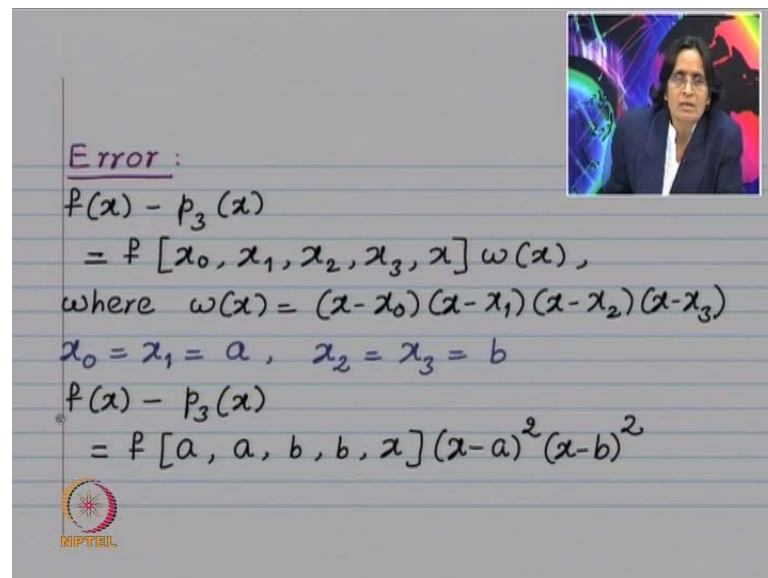 Error :
f(x) - p₃(x)
= f [x₀, x₁, x₂, x₃, x] ω(x),
where ω(x) = (x-x₀)(x-x₁)(x-x₂)(x-x₃)
x₀ = x₁ = a, x₂ = x₃ = b
f(x) - p₃(x)
= f [a, a, b, b, x] (x-a)² (x-b)²
NPTEL